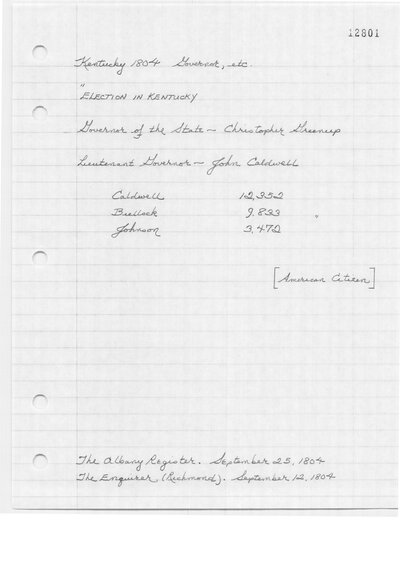 12801
Kentucky 1804 Governor, etc.
"
ELECTION IN KENTUCKY
Governor of the State - Christopher Greenup
Lieutenant Governor - John Caldwell
Caldwell 12,352
Bullock 9,833 "
Johnson 3,472
[American Citizen]
The Albany Register. September 25, 1804
The Enquirer (Richmond). September 12, 1804